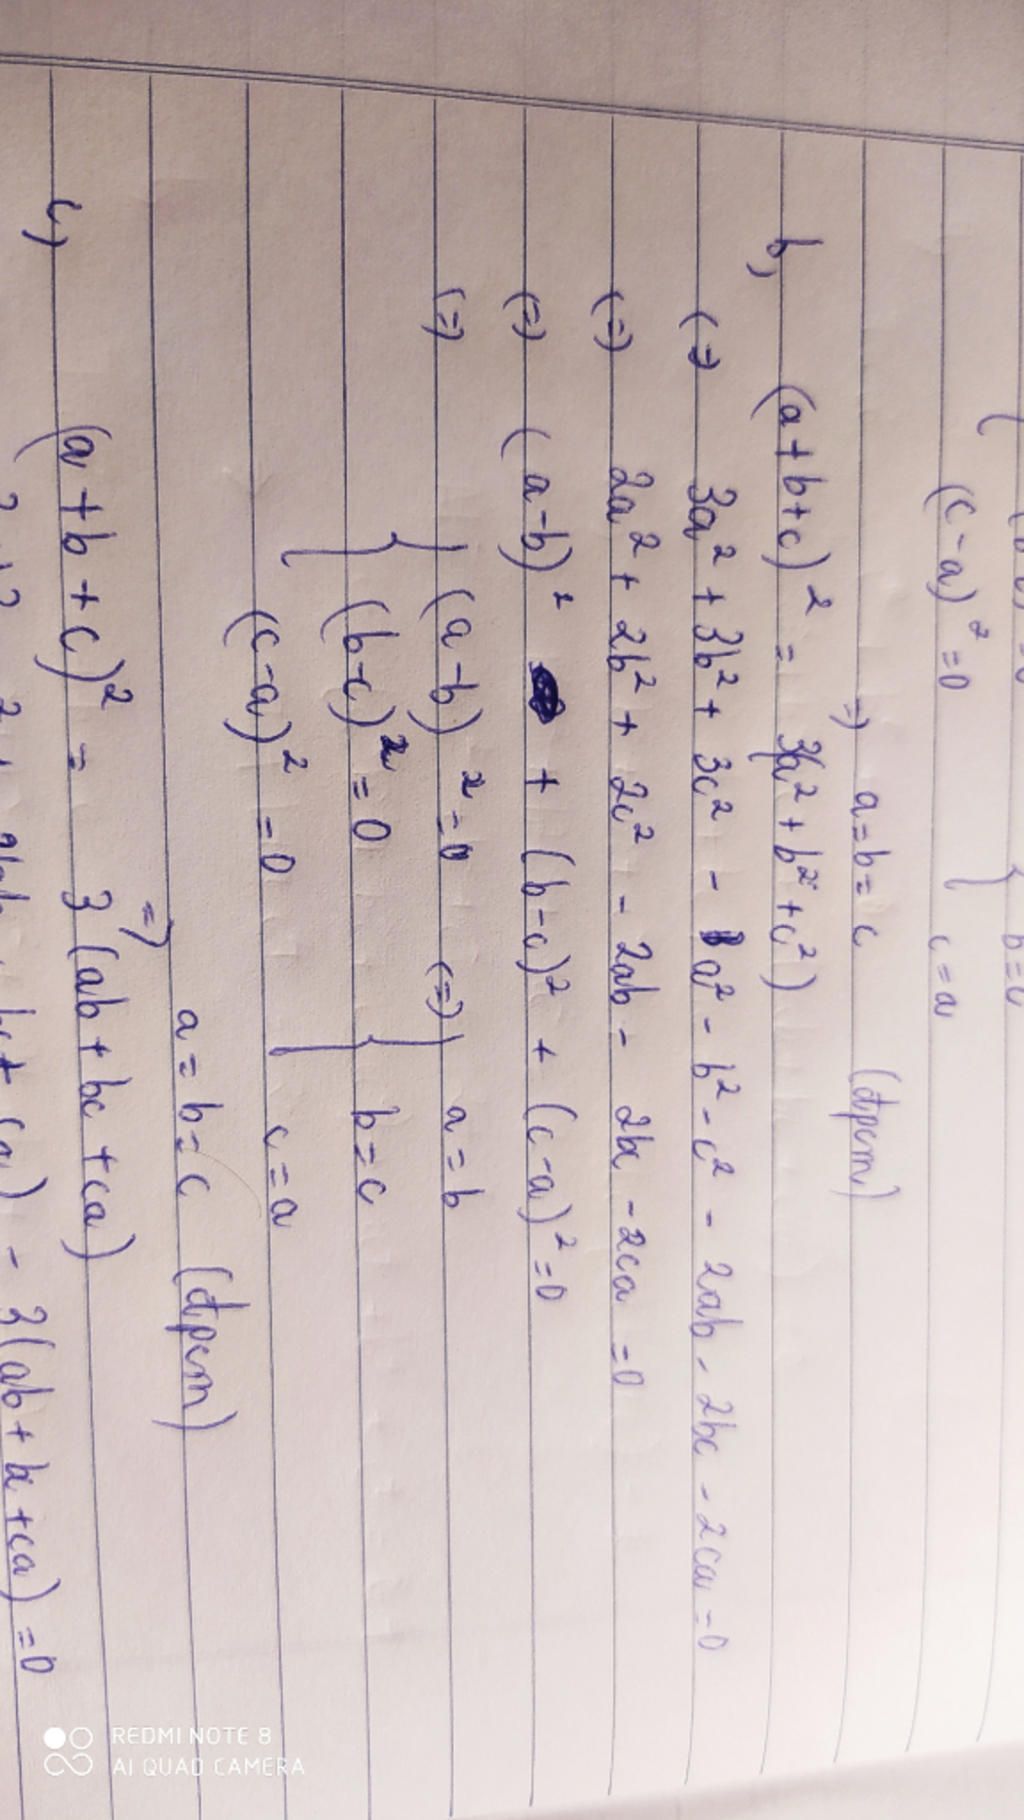 (c-a)² =0 c=a
=) a=b=c (đpcm)
b, (a+b+c)² = 3(a²+b²+c²)
(=) 3a² +3b² + 3c² - a² - b² - c² - 2ab - 2bc - 2ca =0
(=) 2a² + 2b² + 2c² - 2ab - 2bc - 2ca =0
(=) (a-b)² + (b-c)² + (c-a)² =0
(=) { (a-b)² =0 (=) { a=b
(b-c)² =0 b=c
(c-a)² =0 c=a
=) a=b=c (đpcm)
c, (a+b+c)² = 3(ab+bc+ca)
bc + ca) - 3(ab+bc+ca) =0
REDMI NOTE 8
AI QUAD CAMERA